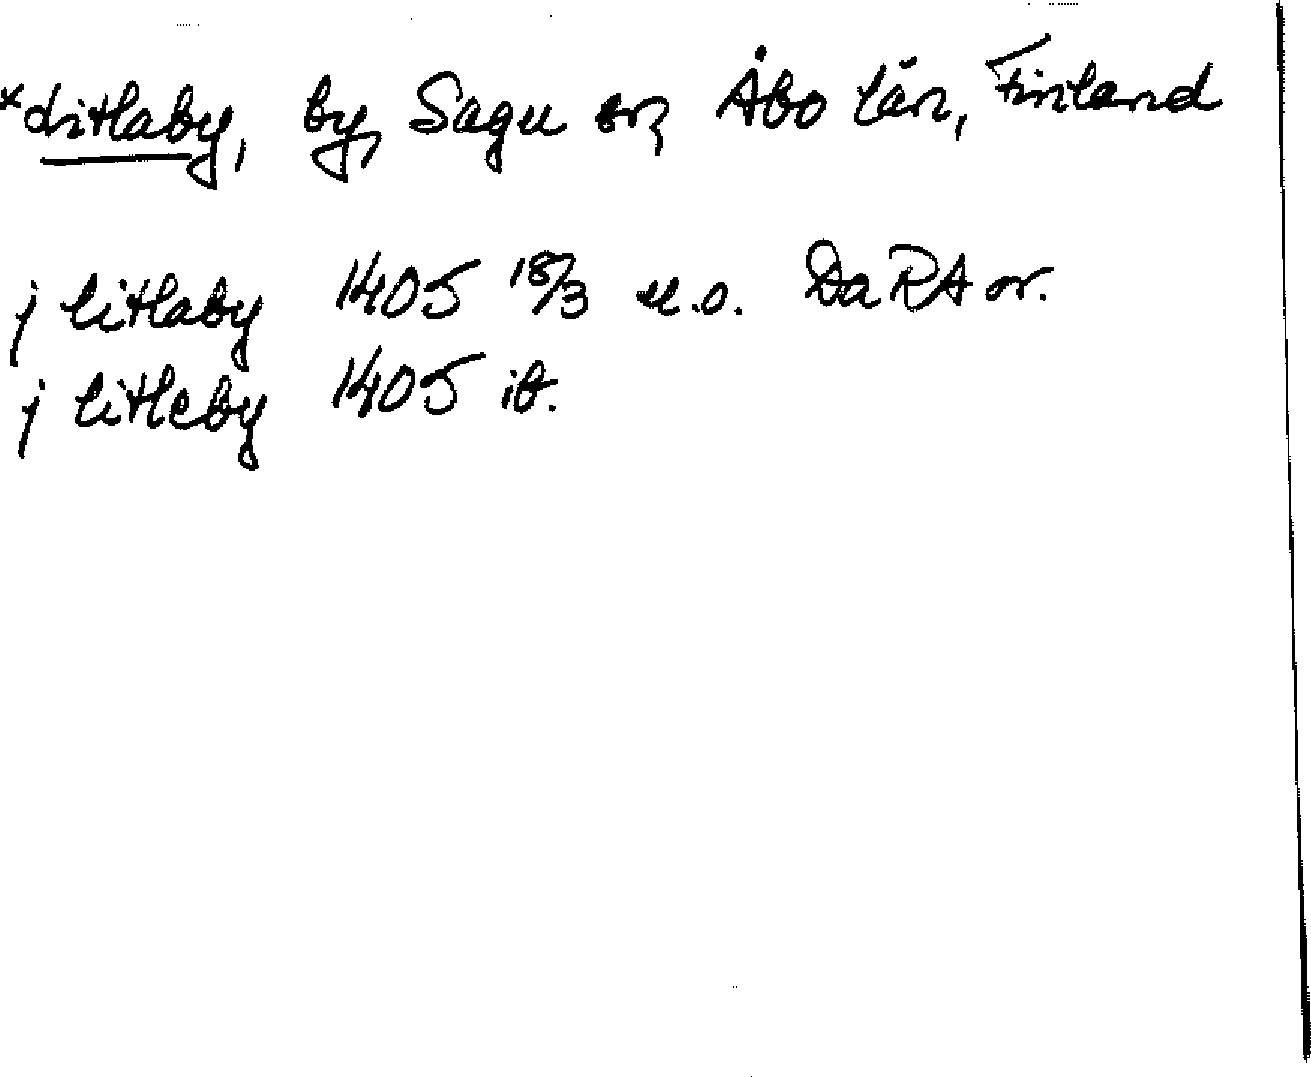 *Litlaby, by, Sagu sn, Åbo län, Finland
j litlaby 1405 18/3 u.o. DaRA or.
j litleby 1405 ib.